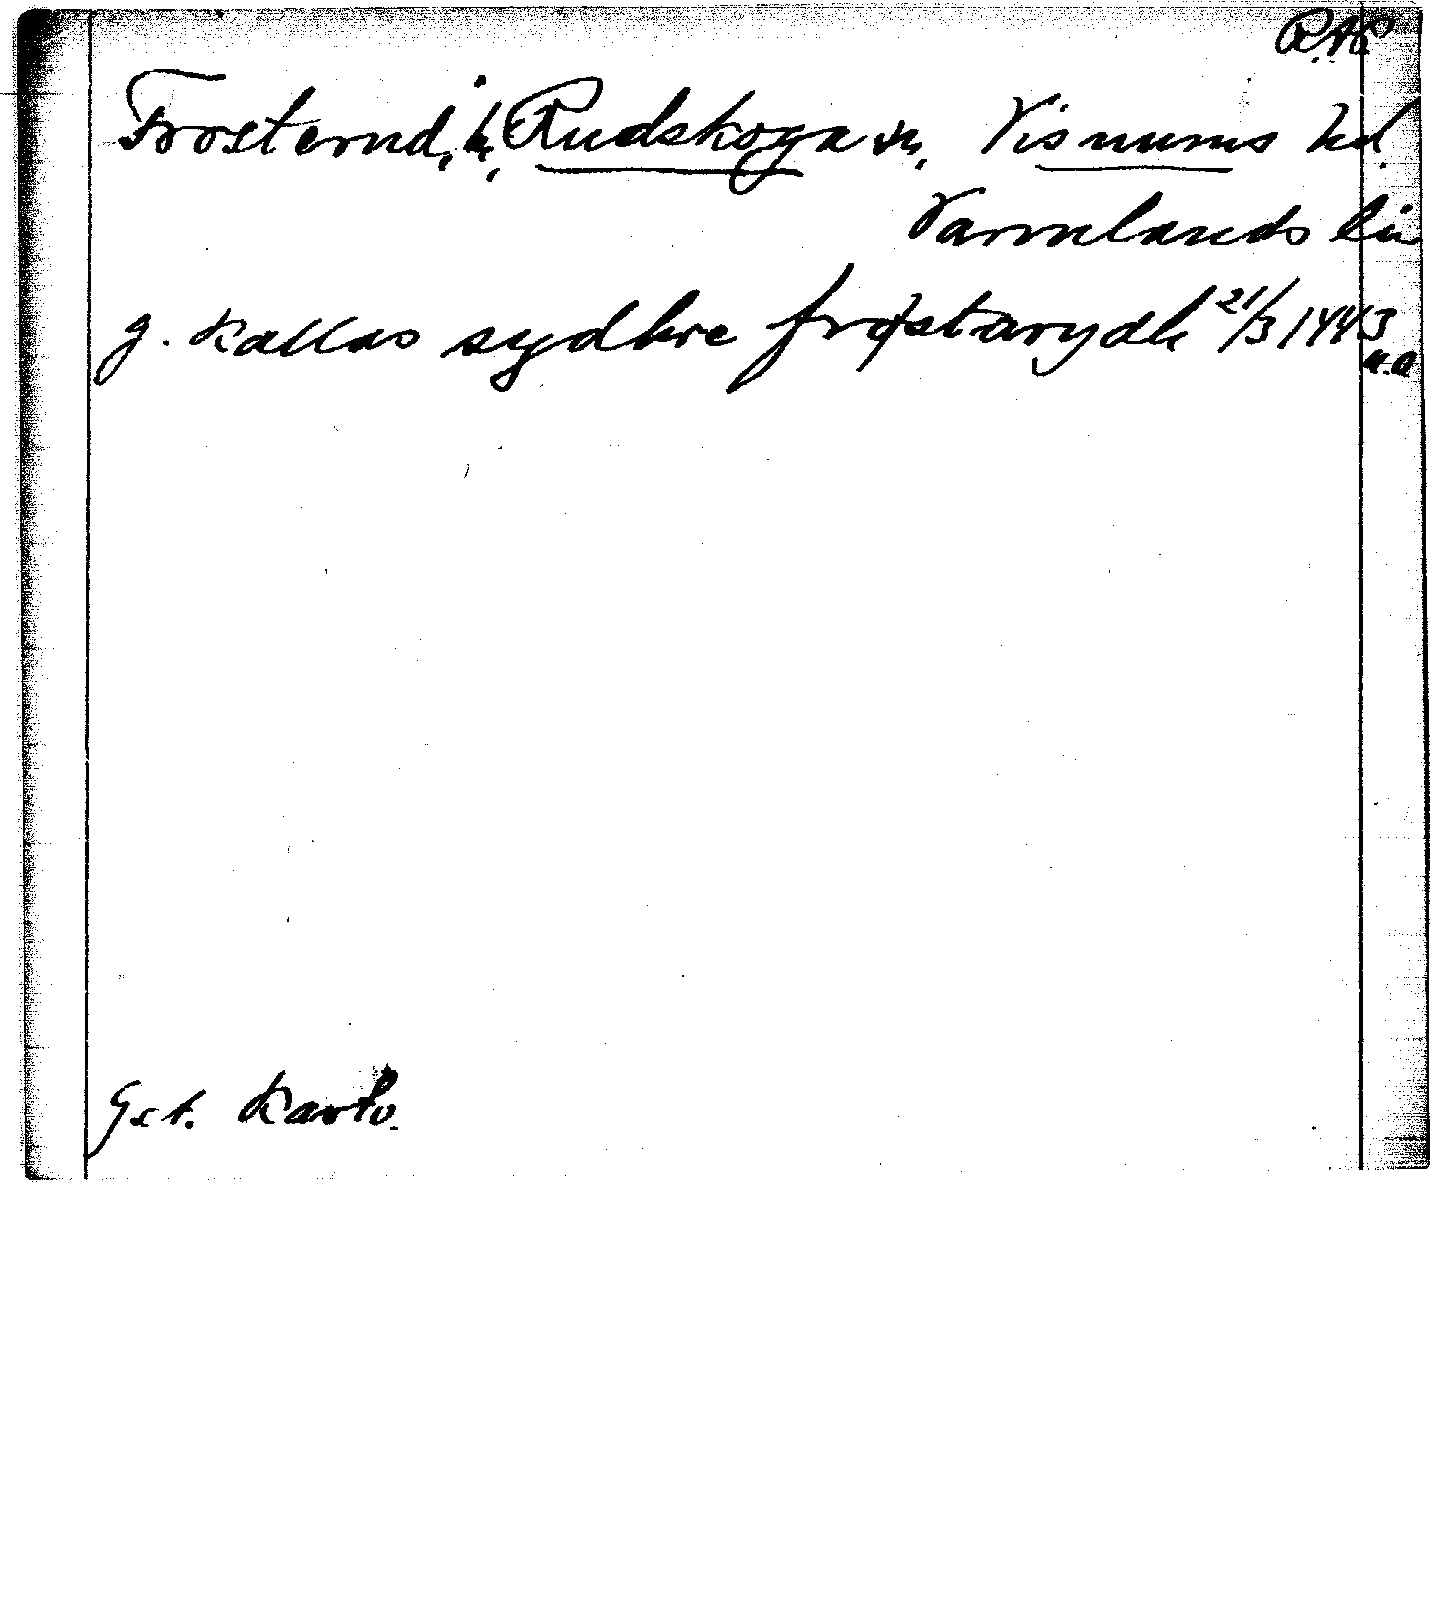 Frosterud, h, Rudskoga sn, Visnums hd.
Värmlands län
g. kallas sydhre frøstarydh 21/3 1443
Ext. Kartv.